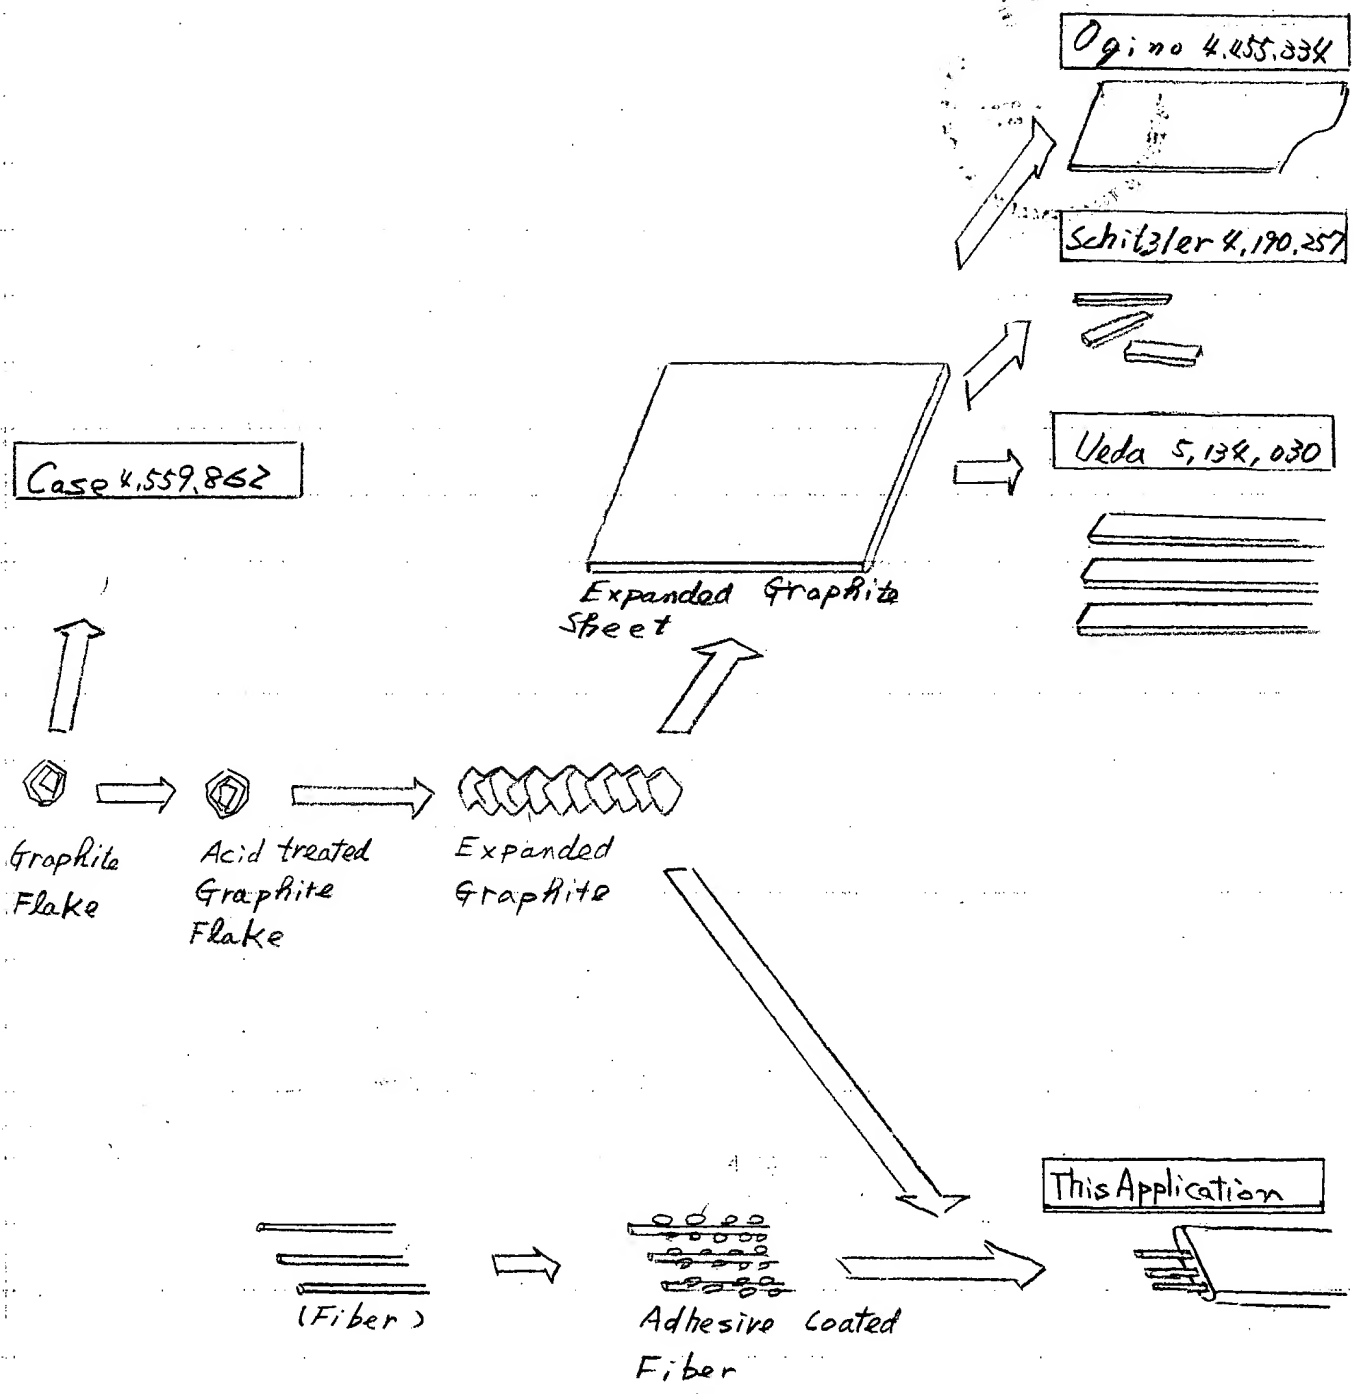 Ogino 4.455.334
Schitzler 4,190,257
Ueda 5,134,030
Case 4,559,862
Expanded Graphite
Sheet
Graphite
Flake
Acid treated
Graphite
Flake
Expanded
Graphite
This Application
(Fiber)
Adhesive Coated
Fiber